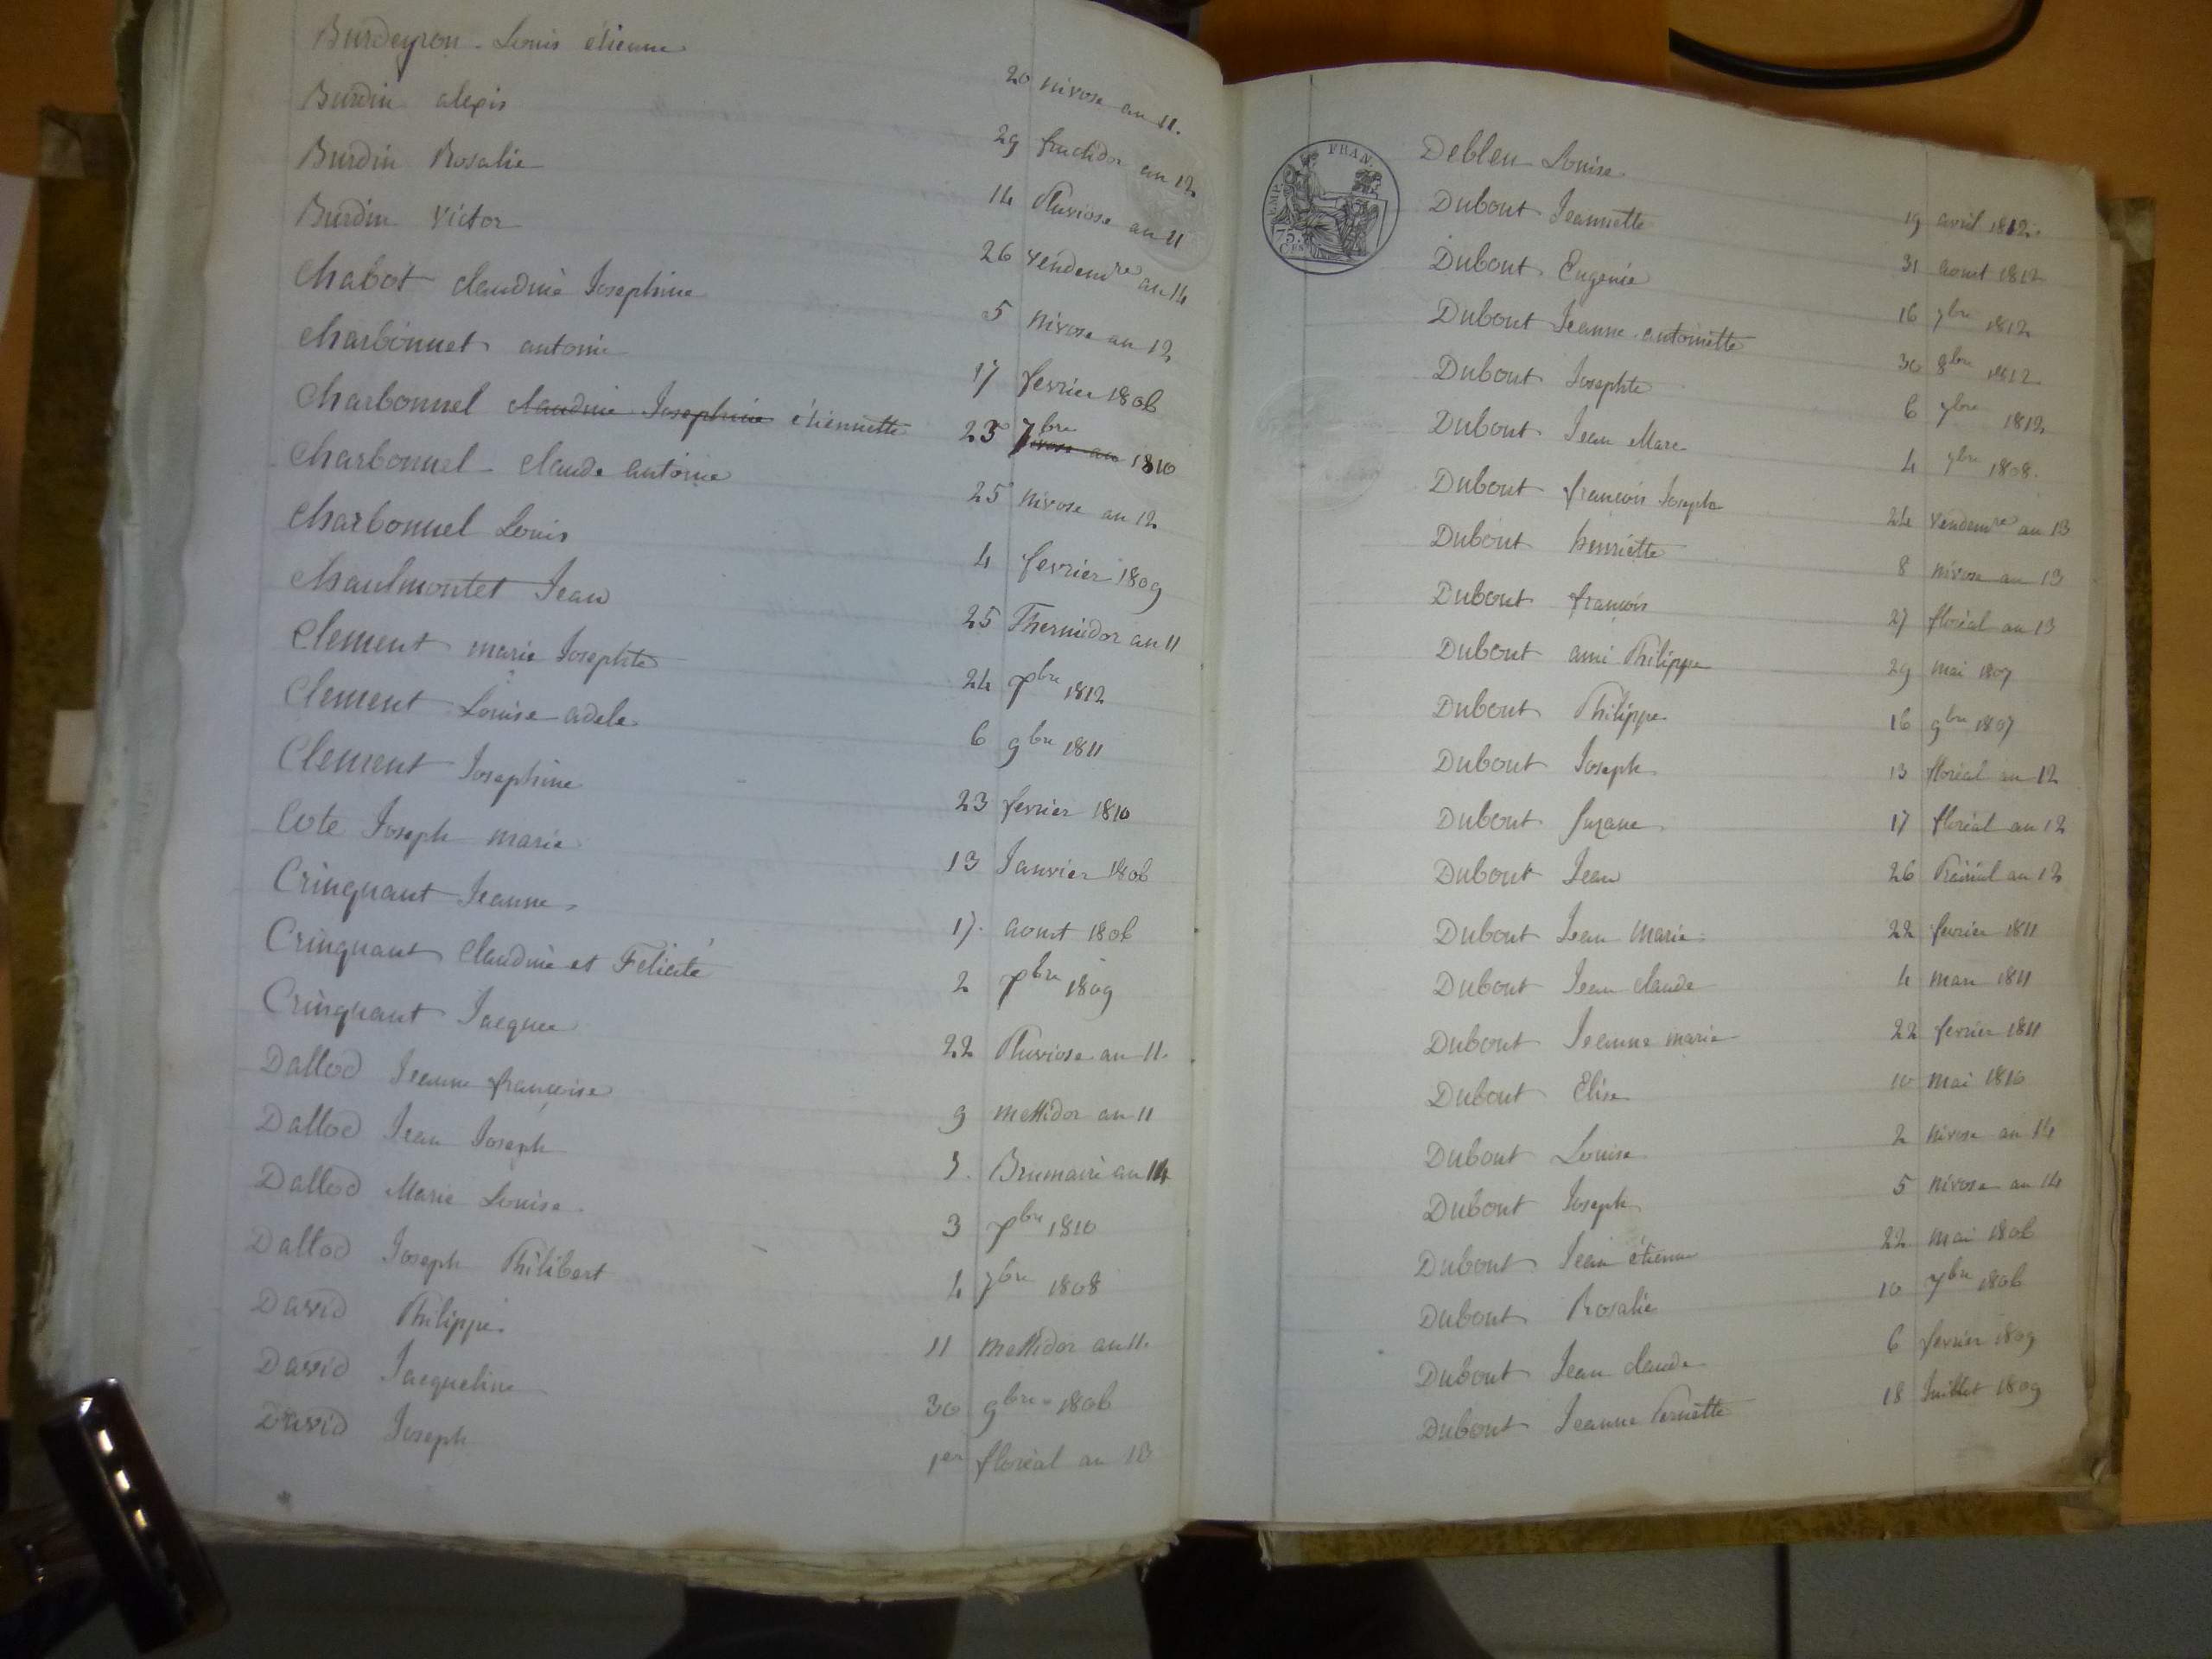 Burdeyron Louis étienne 20 nivose an 11.
Burdin alexis 29 fructidor an 12
Burdin Rosalie 14 Pluviose an 11
Burdin victor 26 vendemre an 14
Chabot claudine Josephine 5 nivose an 12
Charbonnet antoine 17 fevrier 1806
Charbonnel claudine Josephine étiennette 23 7bre 1810
Charbonnel claude antoine 25 nivose an 12
Charbonnel Louis 4 fevrier 1809
Chaulmontet Jean 25 Thermidor an 11
Clement marie Josephte 24 7bre 1812
Clement Louise adele. 6 9bre 1811
Clement Josephine 23 fevrier 1810
Cote Joseph marie 13 Janvier 1806
Crinquant Jeanne 17. aout 1806
Crinquant Claudine et Félicité 2 7bre 1809
Crinquant Jacques 22 Pluviose an 11.
Dallod Jeanne françoise 9 messidor an 11
Dallod Jean Joseph Brumaire an 14
Dallod Marie Louise 3 7bre 1810
Dallod Joseph Philibert 4 7bre 1808
David Philippe. 11 messidor an 11.
David Jacqueline 30 9bre 1806
David Joseph 1er floréal an 13
EMP. FRAN.
75. CES
Debleu Louise 19 avril 1812.
Dubout Jeannette 31 aout 1812
Dubout Eugenie 16 7bre 1812
Dubout Jeanne antoinette 30 8bre 1812
Dubout Josephte 6 7bre 1812
Dubout Jean Marc 4 7bre 1808.
Dubout françois Joseph 24 vendemre an 13
Dubout henriette 8 nivose an 13
Dubout françois 27 floréal an 13
Dubout ami Philippe 29 mai 1807
Dubout Philippe 16 9bre 1807
Dubout Joseph 13 floréal an 12
Dubout Suzane 17 floréal an 12
Dubout Jean 26 Prairial an 12
Dubout Jean Marie 22 fevrier 1811
Dubout Jean claude 4 mars 1811
Dubout Jeanne marie 22 fevrier 1811
Dubout Elise 10 mai 1810
Dubout Louise 2 nivose an 14
Dubout Joseph 5 nivose an 14
Dubout Jean étienne 22 mai 1806
Dubout Rosalie 10 7bre 1806
Dubout Jean claude 6 fevrier 1809
Dubout Jeanne Pernette 18 Juillet 1809